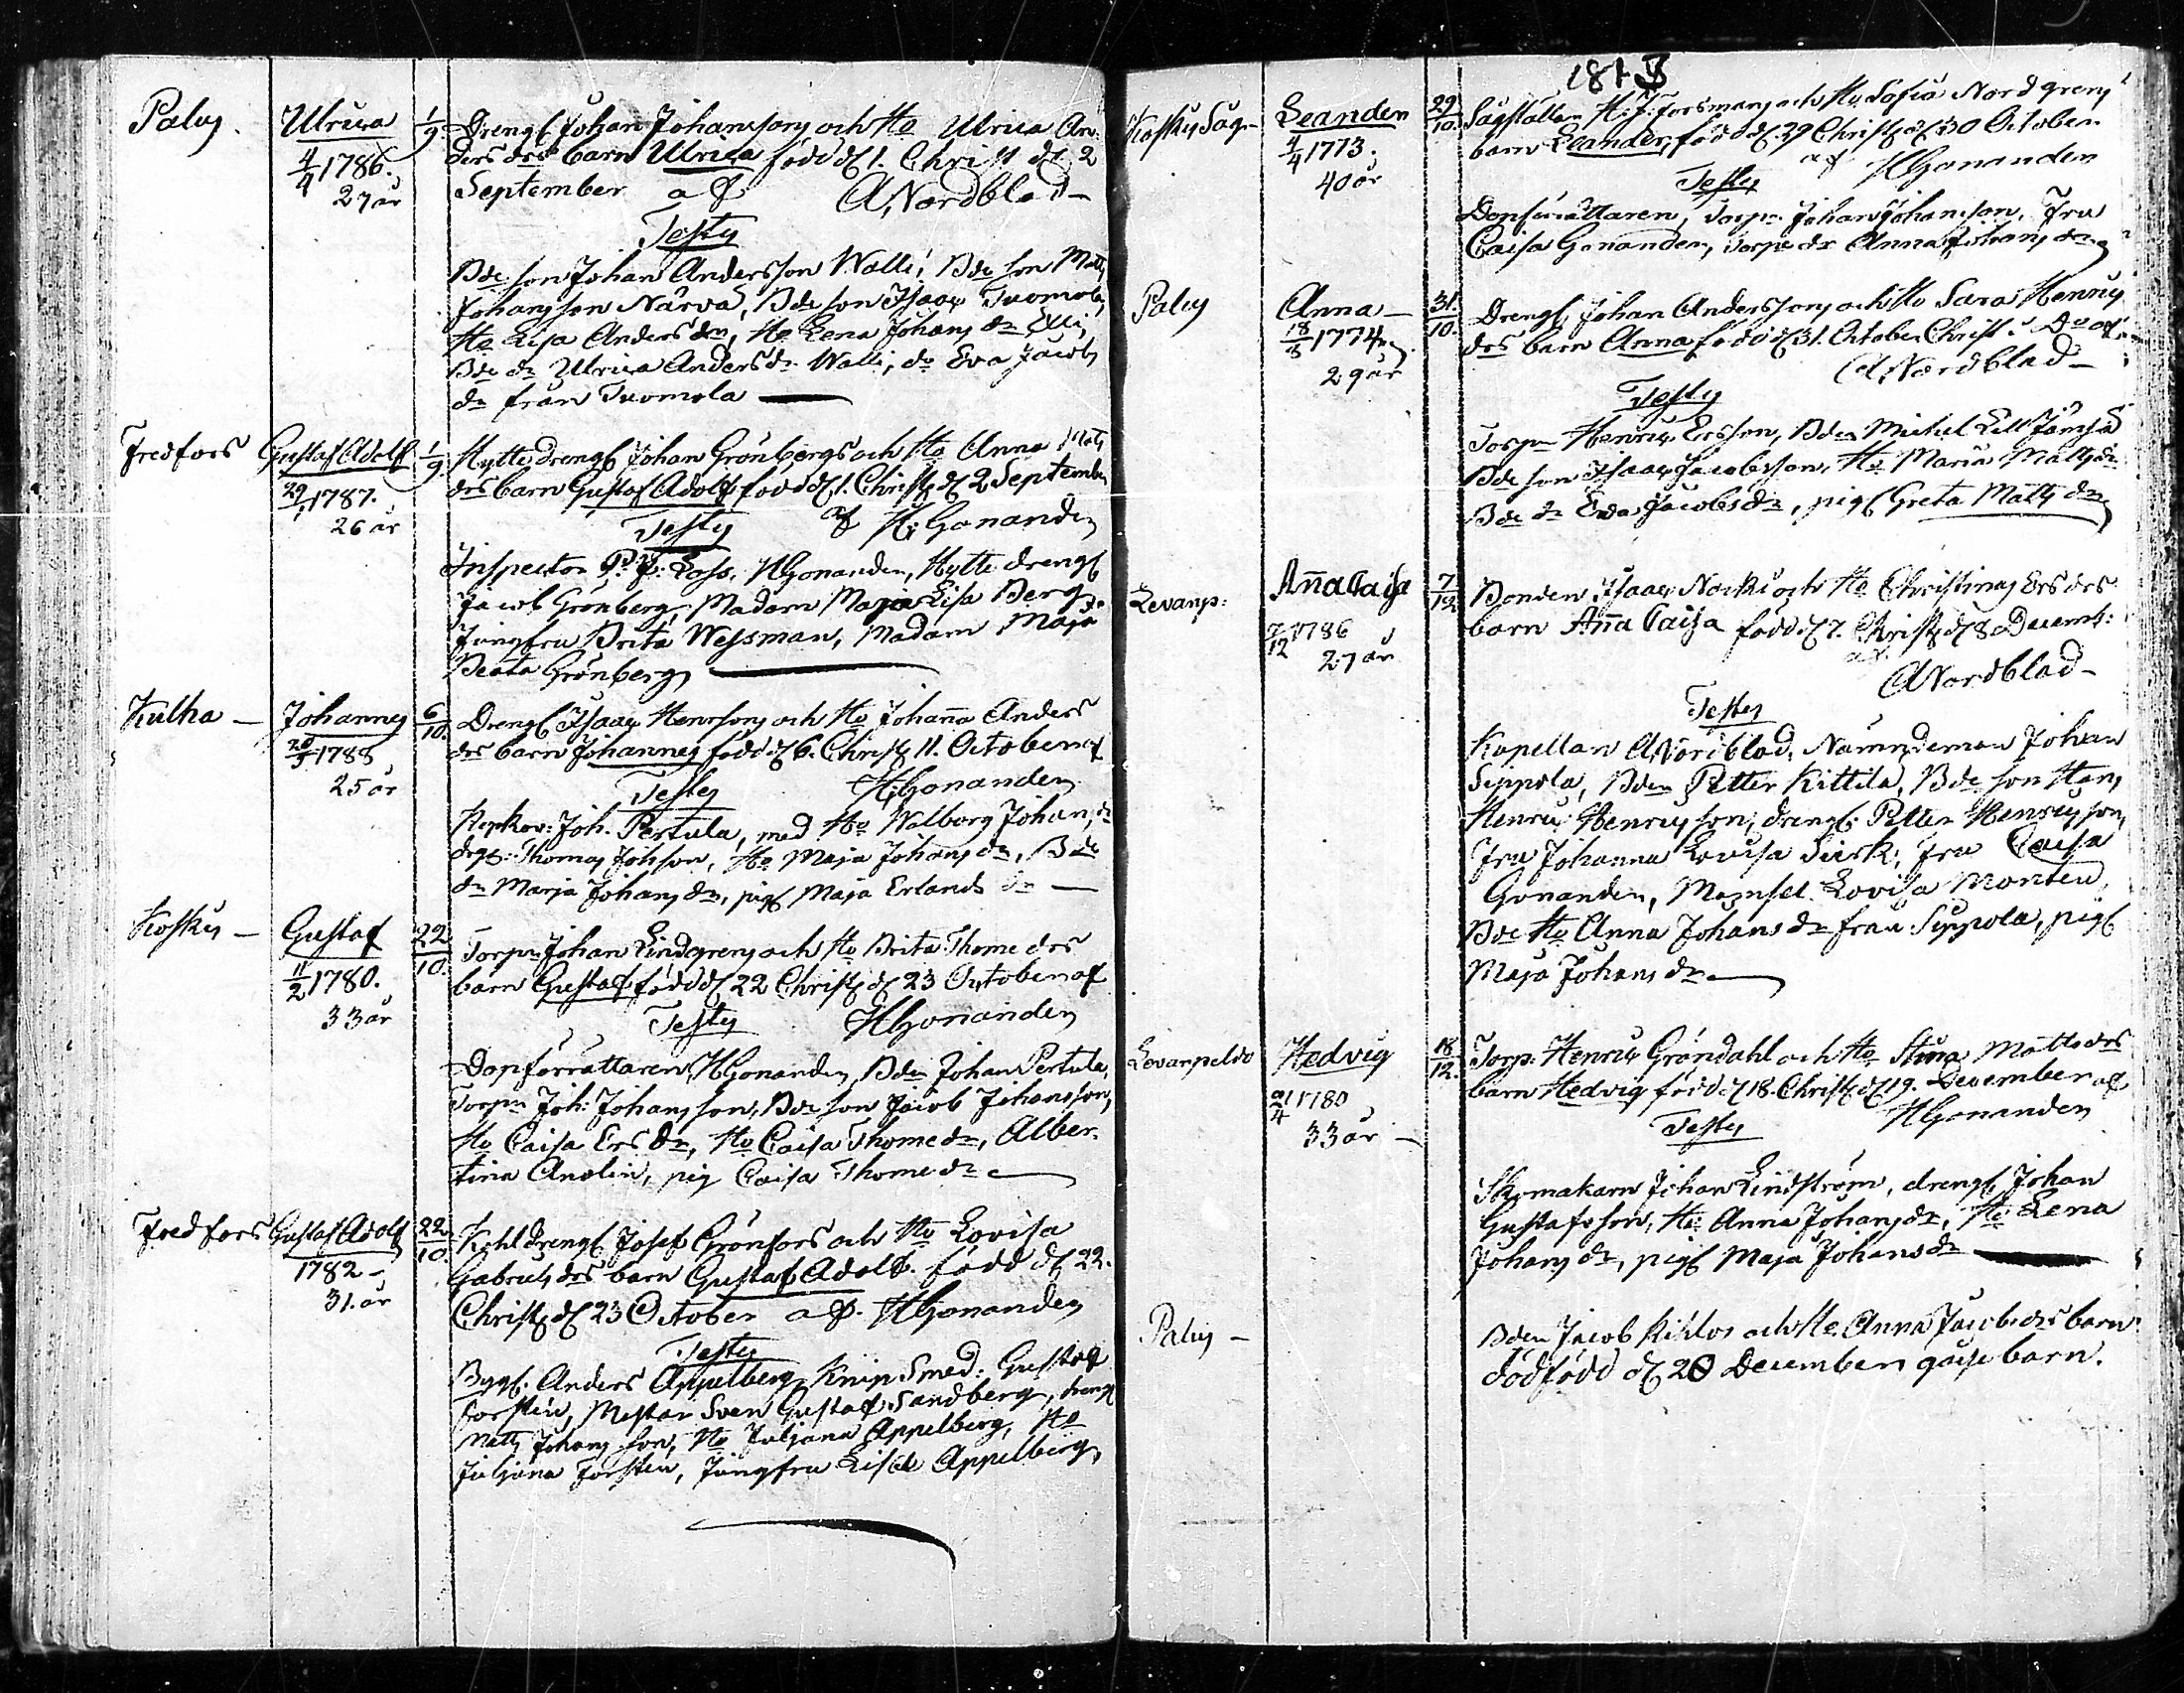 Palus.
Ulrica
4/4 1786.
27 år
1/9
Drengs Johan Johansons och Ho Ulrica An-
ders drs barn Ulrica född d. 1. Christ d. 2
September af ANordblad
Testes
Bde son Johan Andersson Walli, Bde son Matts
Johansson Närvä, Bde son Isaac Tuomola,
Ho Lisa Anders dr, Ho Lena Johans dr
Bde dr Ulrica Anders dr Walli, do Eva Jacobs
dr från Tuomola
Fredfors
Gustaf Adolf
29/1 1787.
26 år
1/9
Hyttedrengs Johan Grönbergs och Ho Anna Matts
drs barn Gustaf Adolf född d. 1. Christ d. 2 September
Testes af H: Gonander
Inspector P. F: Loss, HGonander, Hytte drengs
Jacob Grönberg, Madam Maja Lisa Berg
Jungfru Brita Wessman, Madam Maja
Beata Grönberg
Kulha
Johannes
1788
25 år
6/10
Drengs Isaac Henrsons och Ho Johanna Anders
drs barn Johannes född d. 6. Christ 11. October af
Testes HGonander
Joh. Pertula, med Ho Walborg Johans dr
drgs: Thomas Johson, Ho Maja Johans dr, Bde
dr Marja Johans dr, pigs Maja Erlands dr
Koskis
Gustaf
11/2 1780.
33 år
22/10.
Torpn Johan Lindgrens och Ho Brita Thome drs
barn Gustaf född d. 22 Christ d. 23 October af
Testes HGonander
Dopförrättaren HGonander, Bden Johan Pertula,
Torpn Joh: Johansson, Bde son Jacob Johansson,
Ho Caisa Ers dr, Ho Caisa Thome dr, Alber-
tina Anolin, pig Caisa Thome dr
Fredfors
Gustaf Adolf
1782
31. år
22/10.
Kohldrengs Josef Grönfors och Ho Lovisa
Gabriels drs barn Gustaf Adolf. född d. 22.
Christ d. 23 October af. HGonander
Testes
Byggs. Anders Appelberg, KnipSmed: Gustaf
Forsten, Mestar Sven Gustaf Sandberg, drengs
Matts Johansson, Ho Juljana Appelberg, Ho
Juljana Forsten, Jungfru Lisa Appelberg,
1813
Koskis Såg
Leander
4/4 1773.
40 år
29/10.
Sågställan H: J: Forsmans och Ho Sofia Nordgrens
barn Leander, född d. 29 Christ d. 30 October
af HGonander
Testes
Dopförrättaren, Torpn Johan Johansson, Fru
Caisa Gonander, Torpe dr Anna Johans dr
Palus
Anna
1774
29 år
31./10.
Drengs Johan Anderssons och Ho Sara Henrics
drs barn Anna född d. 31. October Christ. do af
ANordblad
Testes
Torpn Henric Ersson, Bden Michel Lill Jämsä
Bde son Isaac Jacobsson, Ho Maria Matts dr
Bde dr Eva Jacobs dr, pigs Greta Matts dr
Levanp:
Anna Caisa
7/12 1786
27 år
7/12
Bonden Isaac Norki och Ho Christinas Ers drs
barn Anna Caisa född d. 7. Christ d. 8 Decemb:
af
ANordblad
Testes
Kapellan ANordblad, Nämndeman Johan
Seppola, Bden Petter Kittilä, Bde son Hans
Henric Henricsson, drengs. Petter Henricsson,
Fru Johanna Lovisa Dirk, Fru Caisa
Gonander, Mamsel Lovisa Monteu,
Bde Ho Anna Johans dr från Seppola, pigs
Maja Johans dr
Levanpeldo
Hedvig
1780
33 år
18/12.
Torp: Henric Gröndahl och Ho Stina Matts drs
barn Hedvig född d. 18. Christ d. 19. December af
Testes HGonander
Skomakarn Johan Lindström, drengs Johan
Gustafsson, Ho: Anna Johans dr, Ho: Lena
Johans dr, pigs Maja Johans dr
Palus
Bden Jacob Kihlos och Ho. Anna Jacobs drs barn
dödfödd d. 20 December gåsse barn.